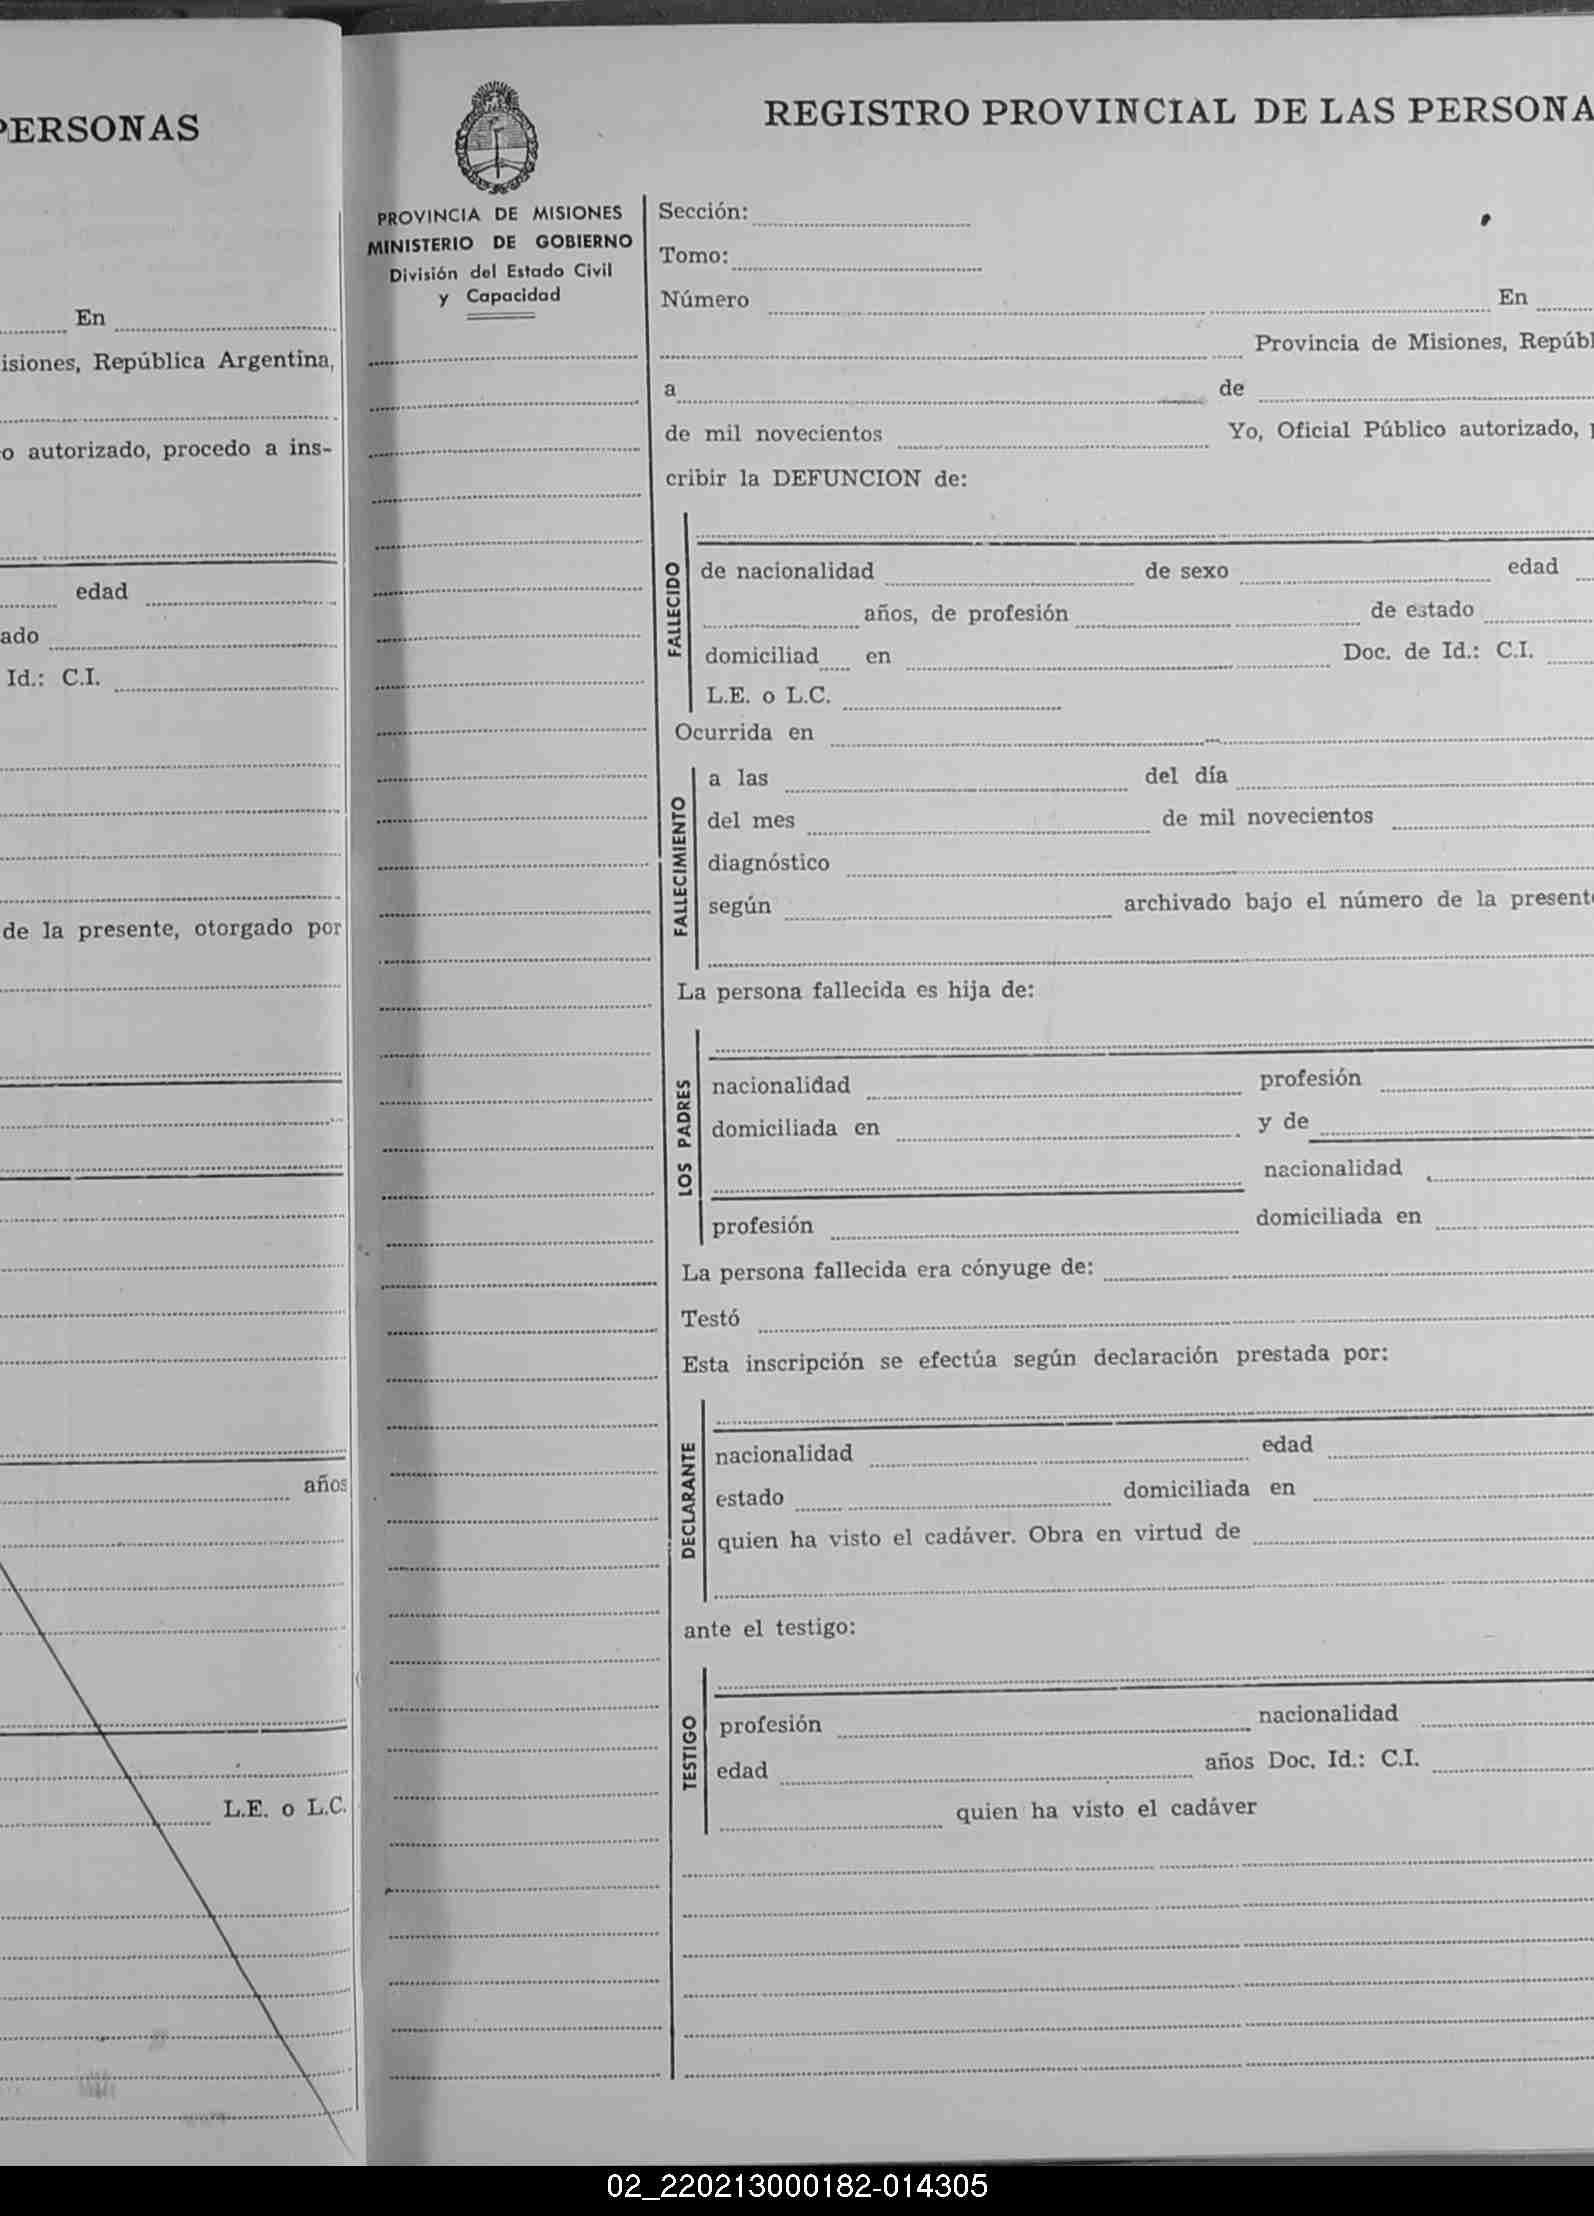 PERSONAS
En
isiones, República Argentina,
o autorizado, procedo a ins-
edad
ado
Id.: C.I.
de la presente, otorgado por
años
L.E. o L.C.
REGISTRO PROVINCIAL DE LAS PERSONA
PROVINCIA DE MISIONES
MINISTERIO DE GOBIERNO
División del Estado Civil
y Capacidad
Sección:
Tomo:
Número En
Provincia de Misiones, Repúbl
a de
de mil novecientos Yo, Oficial Público autorizado, p
cribir la DEFUNCION de:
FALLECIDO
de nacionalidad de sexo edad
años, de profesión de estado
domiciliad en Doc. de Id.: C.I.
L.E. o L.C.
Ocurrida en
FALLECIMIENTO
a las del día
del mes de mil novecientos
diagnóstico
según archivado bajo el número de la presente
La persona fallecida es hija de:
LOS PADRES
nacionalidad profesión
domiciliada en y de
nacionalidad
profesión domiciliada en
La persona fallecida era cónyuge de:
Testó
Esta inscripción se efectúa según declaración prestada por:
DECLARANTE
nacionalidad edad
estado domiciliada en
quien ha visto el cadáver. Obra en virtud de
ante el testigo:
TESTIGO
profesión nacionalidad
edad años Doc. Id.: C.I.
quien ha visto el cadáver
02_220213000182-014305